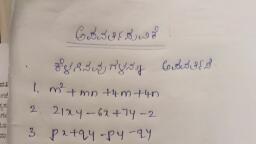 ಅಪವರ್ತಿಸುವಿಕೆ
ಕೆಳಗಿನವುಗಳನ್ನು ಅಪವರ್ತಿಸಿ
1. m² + mn + 4m + 4n
2. 21xy - 6x + 7y - 2
3 px + qy - py - qy